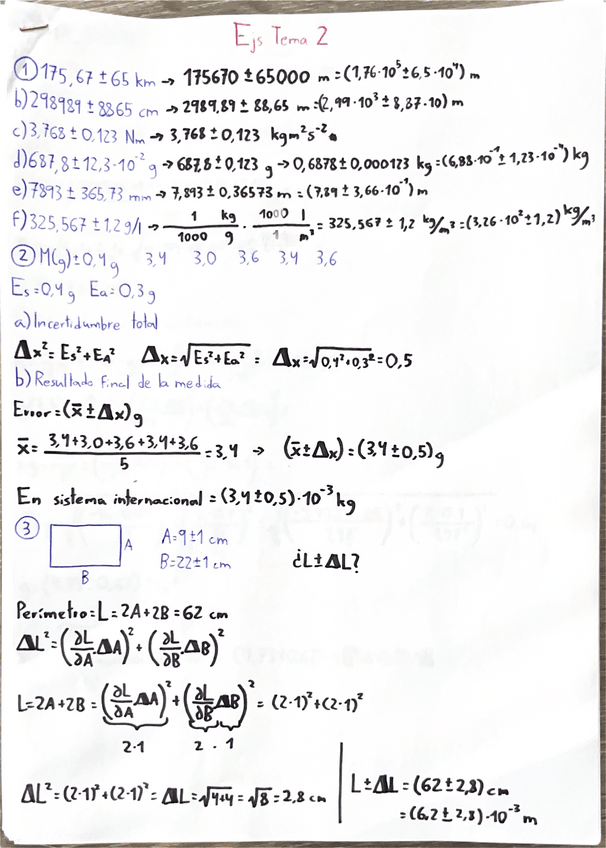 Ejs Tema 2
① 175,67 ± 65 km → 175670 ± 65000 m = (1,76·10⁵ ± 6,5·10⁴) m
b) 298989 ± 8865 cm → 2989,89 ± 88,65 m = (2,99·10³ ± 8,87·10) m
c) 3,768 ± 0,123 Nm → 3,768 ± 0,123 kgm²s⁻²
d) 687,8 ± 12,3·10⁻² g → 687,8 ± 0,123 g → 0,6878 ± 0,000123 kg = (6,88·10⁻¹ ± 1,23·10⁻⁴) kg
e) 7893 ± 365,73 mm → 7,893 ± 0,36573 m = (7,89 ± 3,66·10⁻¹) m
f) 325,567 ± 1,2 g/l → 1/1000 kg/g · 1000/1 l/m³ = 325,567 ± 1,2 kg/m³ = (3,26·10² ± 1,2) kg/m³
② M(g) ± 0,4 g 3,4 3,0 3,6 3,4 3,6
Es = 0,4 g Ea = 0,3 g
a) Incertidumbre total
Δx² = Es² + EA² Δx = √(Es² + Ea²) = Δx = √(0,4² + 0,3²) = 0,5
b) Resultado final de la medida
Error = (x̄ ± Δx) g
x̄ = (3,4+3,0+3,6+3,4+3,6)/5 = 3,4 → (x̄ ± Δx) = (3,4 ± 0,5) g
En sistema internacional = (3,4 ± 0,5)·10⁻³ kg
③ A B A = 9 ± 1 cm
B = 22 ± 1 cm ¿L ± ΔL?
Perímetro = L = 2A + 2B = 62 cm
ΔL² = (∂L/∂A · ΔA)² + (∂L/∂B · ΔB)²
L = 2A + 2B = (∂L/∂A ΔA)² + (∂L/∂B ΔB)² = (2·1)² + (2·1)²
2·1 2 · 1
ΔL² = (2·1)² + (2·1)² = ΔL = √(4+4) = √8 = 2,8 cm
L ± ΔL = (62 ± 2,8) cm
= (6,2 ± 2,8)·10⁻³ m